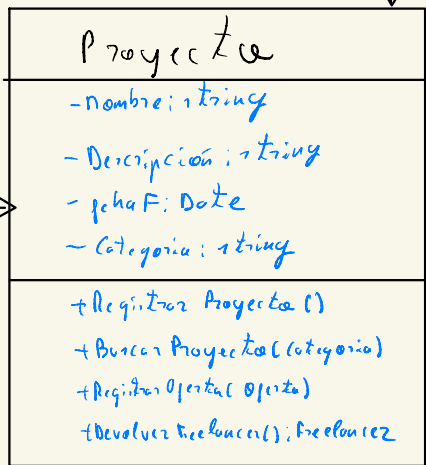 Proyecto
- nombre: string
- Descripción: string
- fechaF: Date
- Categoria: string
+ Registrar Proyecto()
+ Buscar Proyecto(categoria)
+ Registrar Oferta(Oferta)
+ Devolver Freelancer(): Freelancer